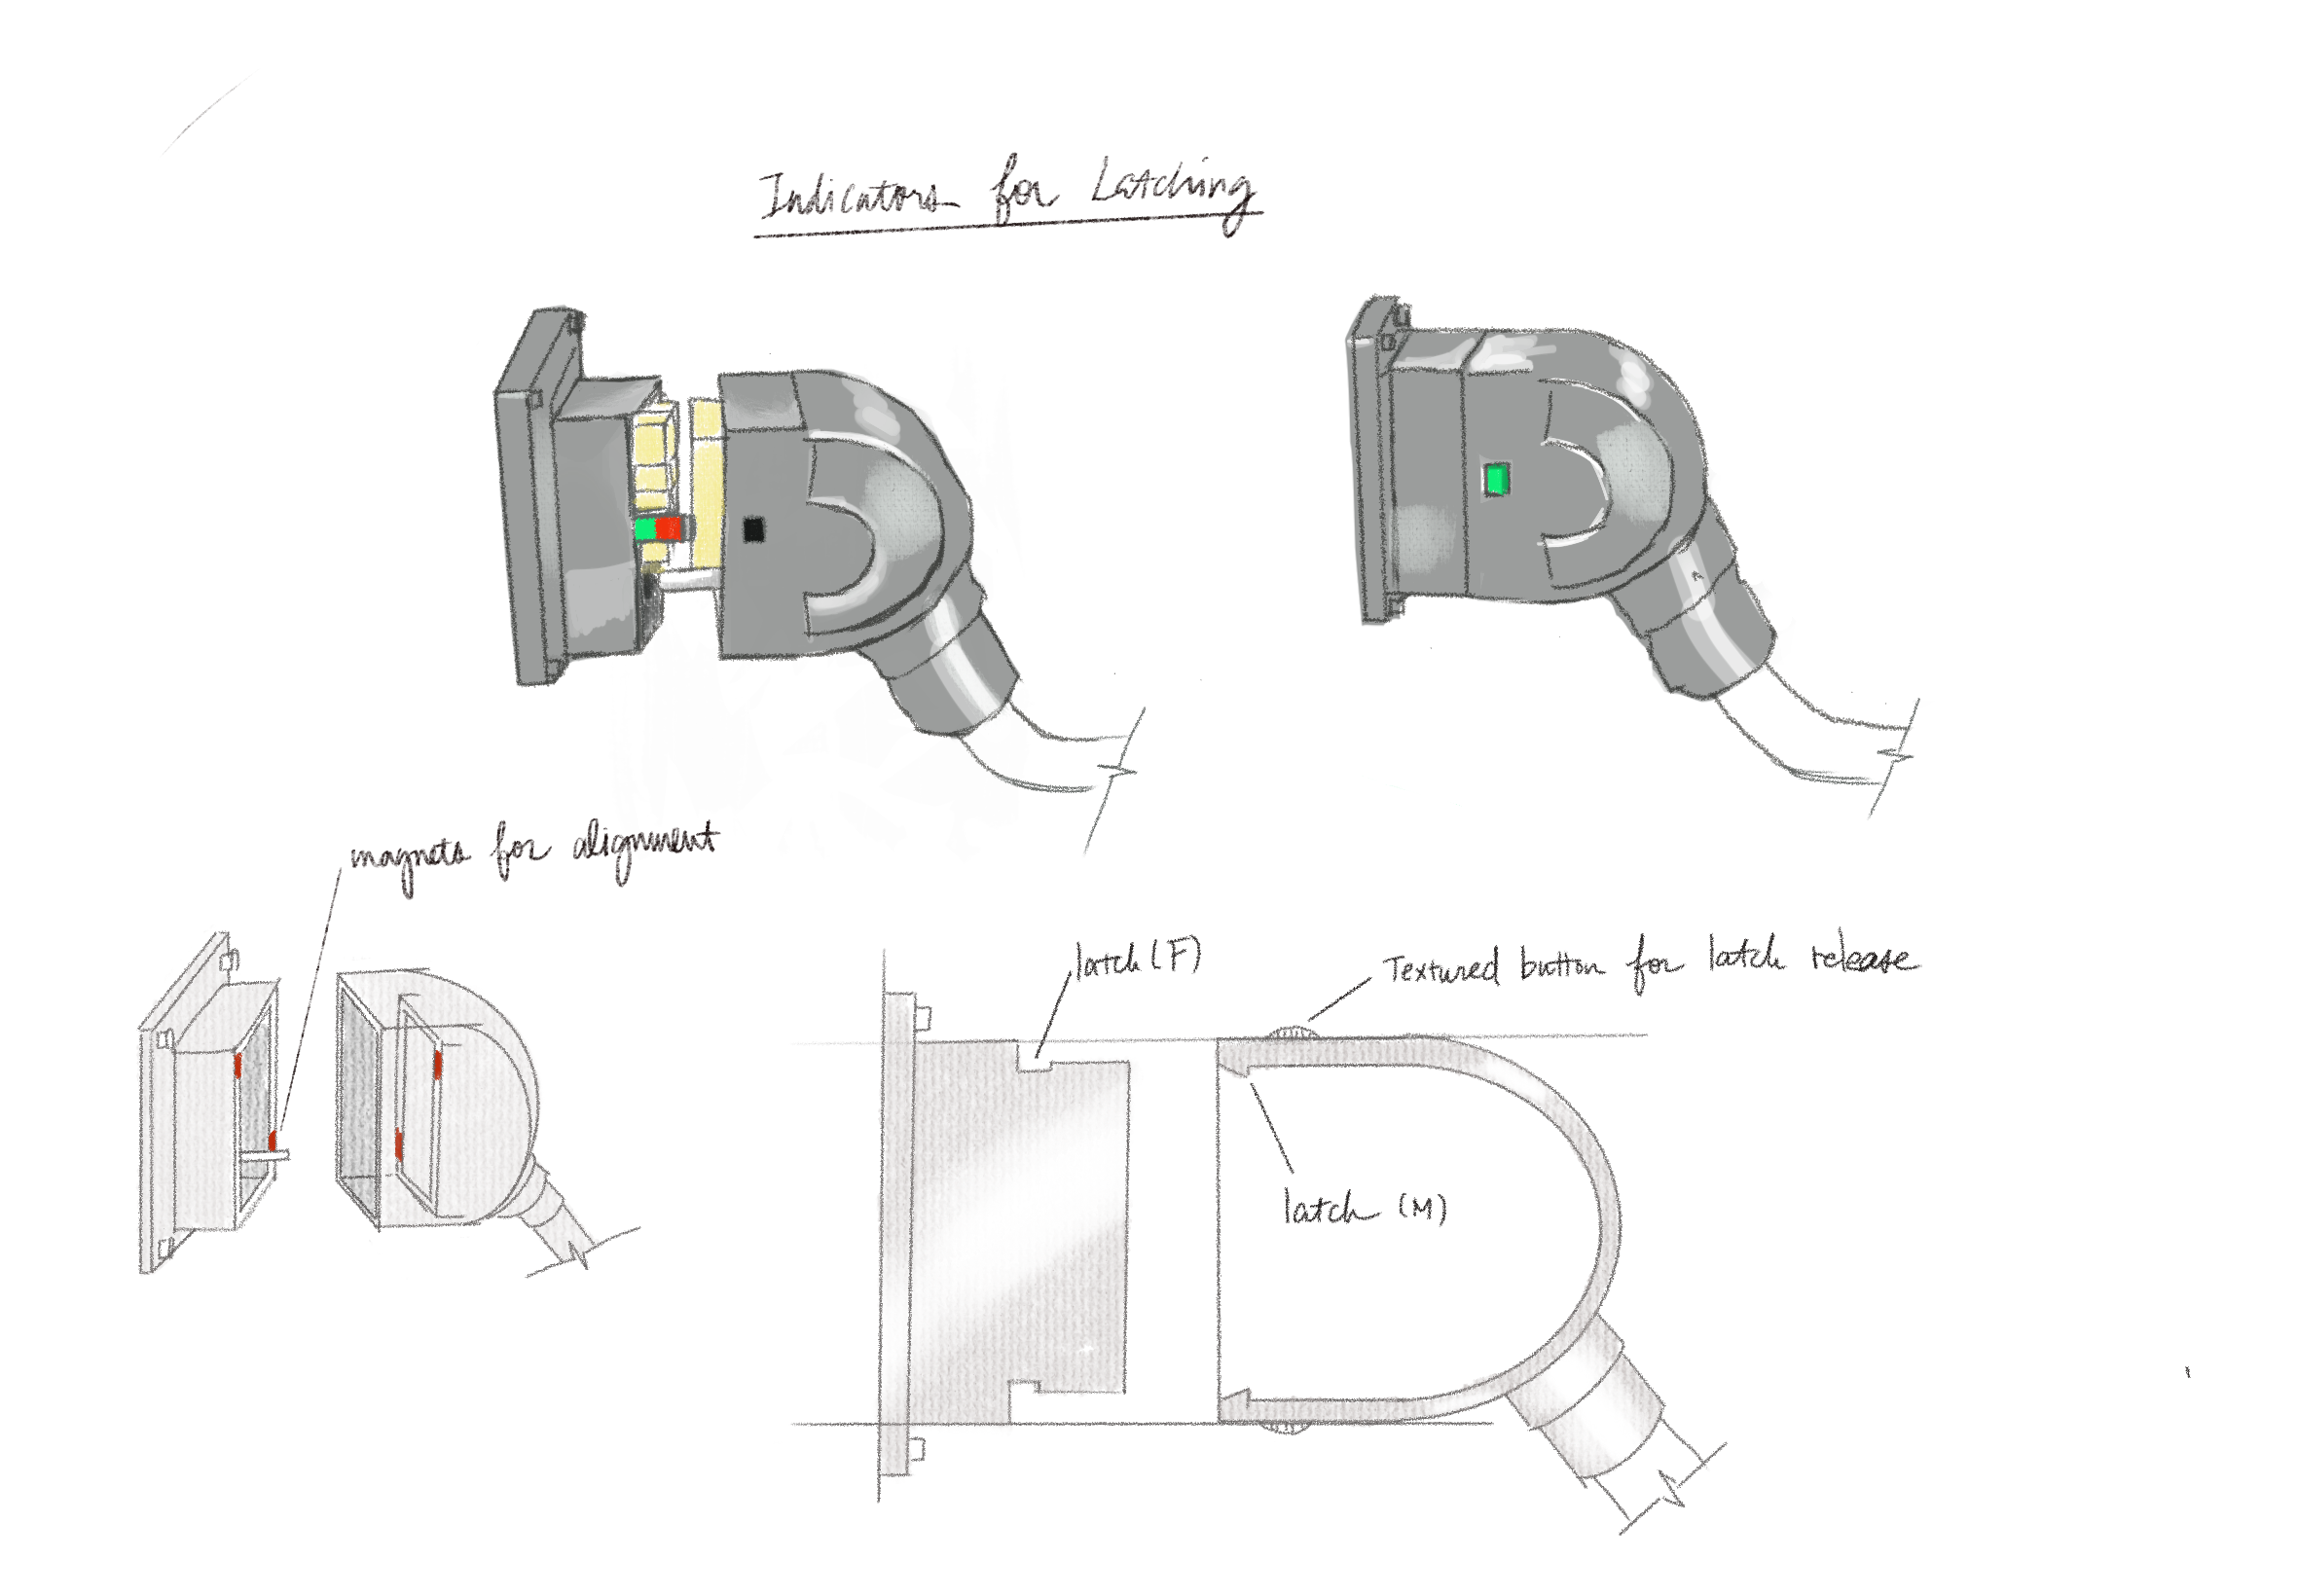 Indicators for Latching
magnets for alignment
latch (F)
Textured button for latch release
latch (M)